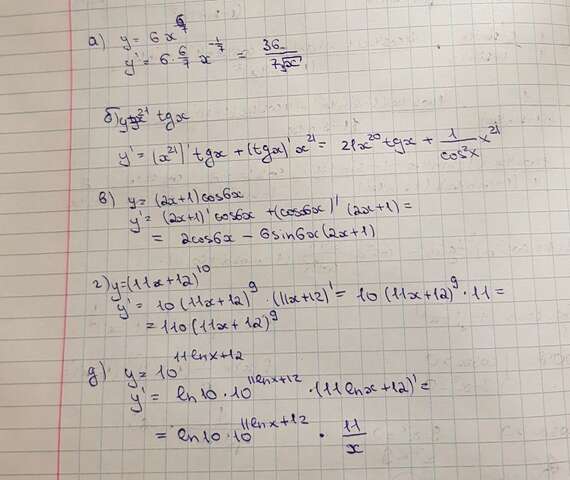 а) y = 6x^(6/7)
y' = 6 · 6/7 x^(-1/7) = 36/(7√x)
б) y = x^21 tgx
y' = (x^21)' tgx + (tgx)' x^21 = 21x^20 tgx + 1/cos²x x^21
в) y = (2x+1)cos6x
y' = (2x+1)' cos6x + (cos6x)' (2x+1) =
= 2cos6x − 6sin6x(2x+1)
г) y = (11x+12)^10
y' = 10(11x+12)^9 · (11x+12)' = 10(11x+12)^9 · 11 =
= 110(11x+12)^9
д) y = 10^(11lnx+12)
y' = ln10 · 10^(11lnx+12) · (11lnx+12)' =
= ln10 · 10^(11lnx+12) · 11/x